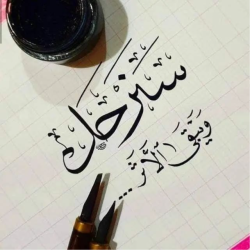 سنرحل
ويبقى الأثر...